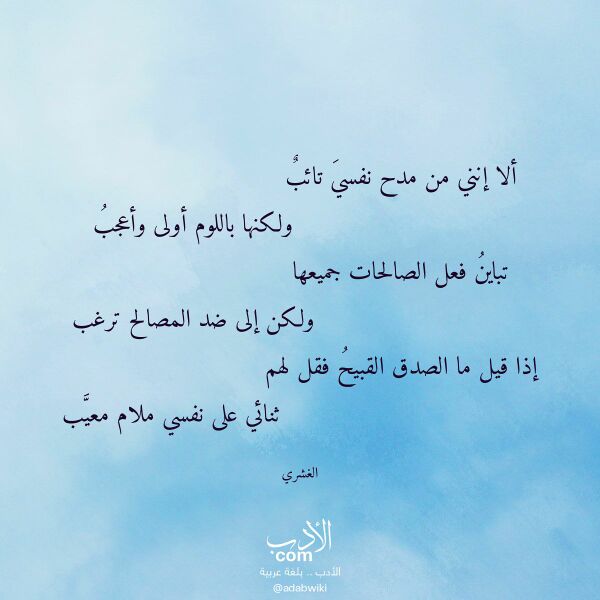 ألا إنني من مدح نفسيَ تائبٌ
ولكنها باللوم أولى وأعجبُ
تباينُ فعل الصالحات جميعها
ولكن إلى ضد المصالح ترغب
إذا قيل ما الصدق القبيحُ فقل لهم
ثنائي على نفسي ملام معيَّب
الغشري
الأدب
com
الأدب .. بلغة عربية
@adabwiki